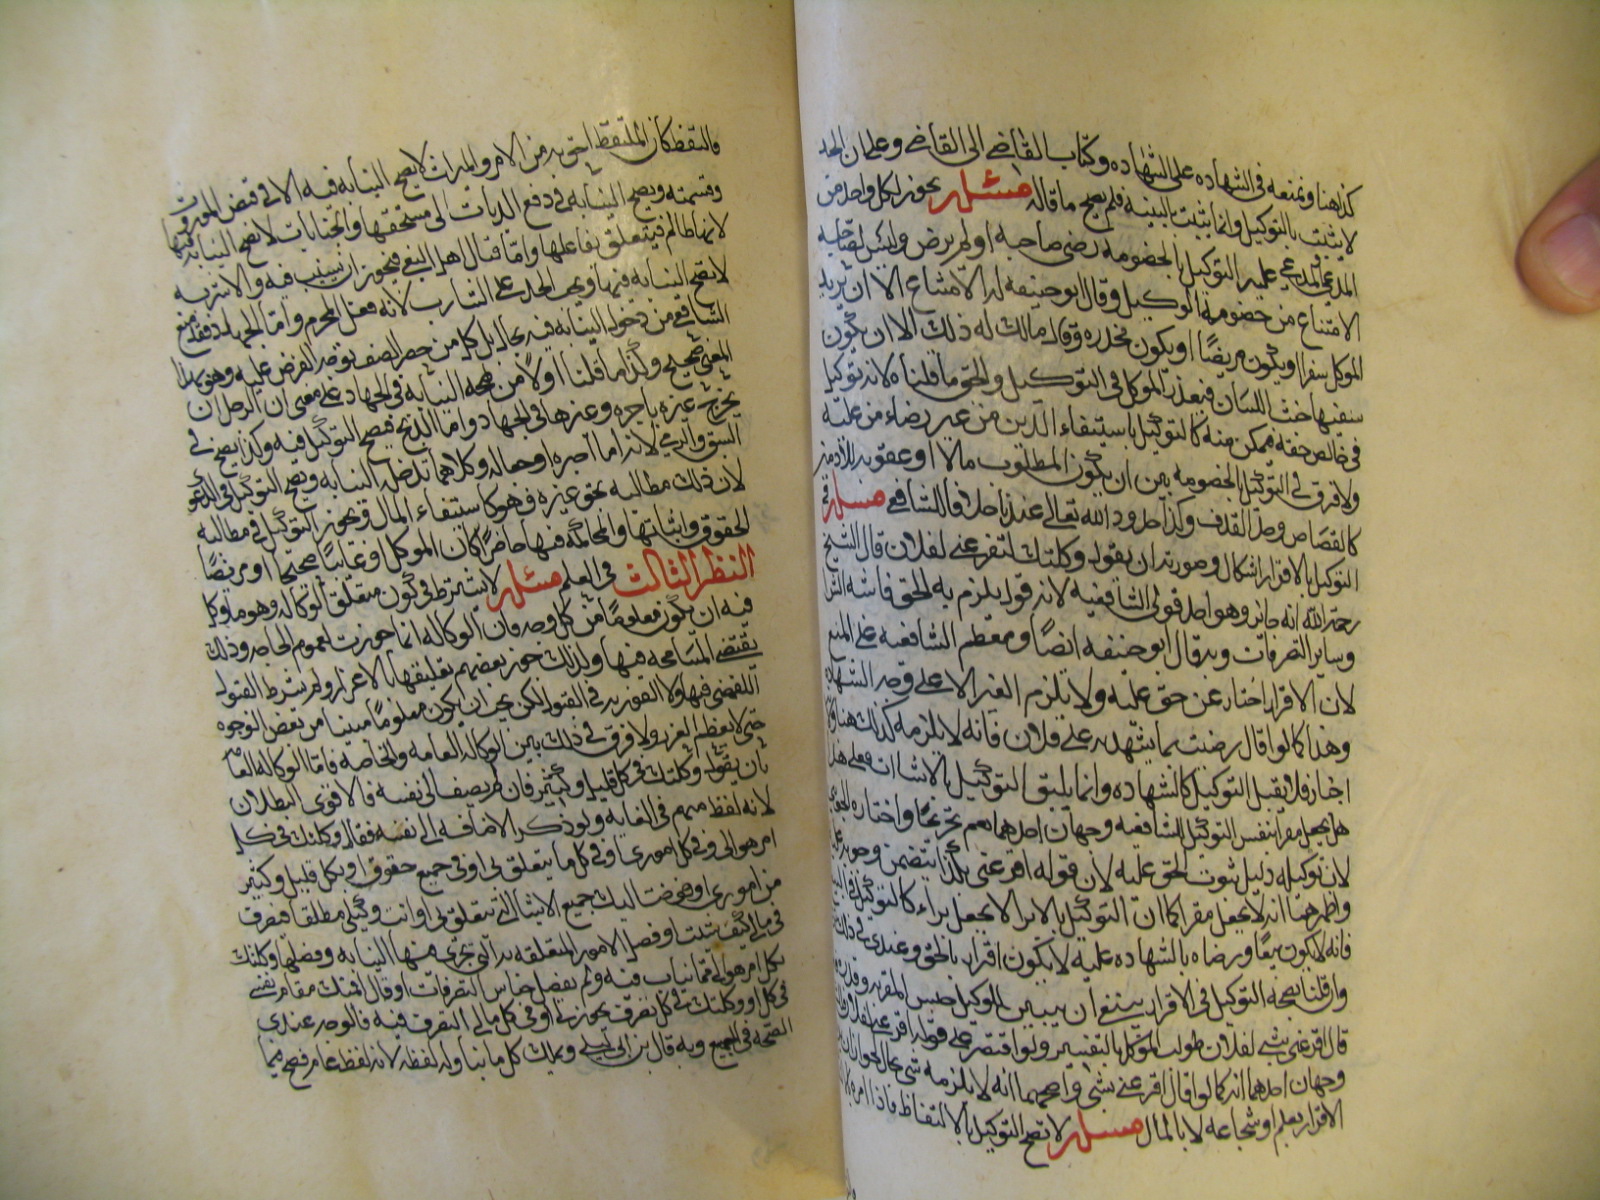 كذا هنا ونمنعه في الشهاده على الشهاده وكتاب القاضي الى القاضي وعلى ان الحد
لا يثبت بالتوكيل وانما يثبت بالبينه فلم يصح ما قاله مسئله يجوز لكل واحد من
المدعي والمدعى عليه التوكيل بالخصومه رضي صاحبه او لم يرض وليس لصاحبه
الامتناع من خصومة الوكيل وقال ابو حنيفه له الامتناع الا ان يريد
الموكل سفرا او يكون مريضا او يكون مخدره وقال مالك له ذلك الا ان يكون
سفيها خبث اللسان فيعذر الموكل في التوكيل والحق ما قلناه لانه توكيل
في خالص حقه فمكن منه كالتوكيل باستيفاء الدين من غير رضاء من عليه
ولا فرق في التوكيل بالخصومه بين ان يكون المطلوب مالا او عقوبه للآدميين
كالقصاص وحد القذف وكذا حدود الله تعالى عندنا خلافا للشافعي مسئله في
التوكيل بالاقرار اشكال وصورته ان يقول وكلتك لتقر عني لفلان قال الشيخ
رحمه الله انه جائز وهو احد قولي الشافعيه لانه قول يلزم به الحق فاشبه الشرا
وساير التصرفات وبه قال ابو حنيفه ايضا ومعظم الشافعيه على المنع
لان الاقرار اخبار عن حق عليه ولا يلزم الغير الا على وجه الشهاده
وهذا كما لو قال رضيت بما يشهد به على فلان فانه لا يلزمه كذلك هنا
اخبار فلا يقبل التوكيل كالشهاده وانما يليق التوكيل بالانشاات فعلى هذا
هل يجعل مقرا بنفس التوكيل للشافعيه وجهان احدهما نعم تخريجا واختاره الجويني
لان توكيله دليل ثبوت الحق عليه لان قوله اقر عني بكذا يتضمن وجوبه عليه
واظهرهما انه لا يجعل مقرا كما ان التوكيل بالابراء لا يجعل براء كالتوكيل في البيع
فانه لا يكون بيعا ورضاه بالشهاده عليه لا يكون اقرارا بالحق وعندي في ذلك
وان قلنا بصحه التوكيل في الاقرار ينبغي ان يبين للوكيل جنس المقر به وقدره
قال اقر عني بشي لفلان طولب الموكل بالتفسير ولو اقتصر على قوله اقر عني لفلان
وجهان احدهما انه كما لو قال اقر عني بشي واصحهما انه لا يلزمه شي بحال لجواز ان
الاقرار بعلم او شجاعه لا بالمال مسئله لا يصح التوكيل بالالتقاط فاذا امره
فالتقط كان الملتقط احق به من الامر والميراث لا يصح النيابه فيه الا في قبض الموروث
وقسمته ويصح النيابه في دفع الديات الى مستحقها والجنايات لا تصح النيابه فيها
لانها ظالم فيتعلق بفاعلها واما قتال اهل البغي فيجوز ان يستنيب فيه والاشربه
لا تصح النيابه فيها ويجب الحد على الشارب لانه فعل المحرم واما الجهاد فقد منع
الشافعي من دخول النيابه فيه بحال لان كل من حضر الصف توجه الفرض عليه وهو بهذا
المعنى صحيح وكذا ما قلنا اولا من صحه النيابه في الجهاد على معنى ان الرجل ان
يخرج غيره باجره وغيرها في الجهاد واما الذبح فيصح التوكيل فيه وكذا يصح في
السبق والرمي لانه اما اجره او جعاله وكلاهما تدخله النيابه ويصح التوكيل في الدعوى
لان ذلك مطالبه بحق غيره فهو كاستيفاء المال ويجوز التوكيل في مطالبه
الحقوق واثباتها والمحاكمه فيها حاضرا كان الموكل او غايبا صحيحا او مريضا
النظر الثالث في العلم مسئله لا يشترط في كون متعلق الوكاله وهو ما وكل
فيه ان يكون معلوما من كل وجه فان الوكاله انما جوزت لعموم الحاجه وذلك
يقتضي المسامحه فيها ولذلك جوز بعضهم تعليقها بالاغرار ولم يشترط القبول
اللفظي فيها ولا الفوريه في القبول لكن يجب ان يكون معلوما مبينا من بعض الوجوه
حتى لا يعظم الغرر ولا فرق في ذلك بين الوكاله العامه والخاصه فاما الوكاله العامه
بان يقول وكلتك في كل قليل وكثير فان لم يضف الى نفسه فالاقوى البطلان
لانه لفظ مبهم في الغايه ولو ذكر الاضافه الى نفسه فقال وكلتك في كل
امر هو الي وفي كل اموري او في كل ما يتعلق بي او في جميع حقوقي او بكل قليل وكثير
من اموري او فوضت اليك جميع الاشيا التي تتعلق بي او انت وكيلي مطلقا فتصرف
في مالي كيف شئت او فصل الامور المتعلقه به التي تجري فيها النيابه وفصلها وكلتك
بكل امر هو الي مما يناب فيه ولم يفصل اجناس التصرفات او قال اقمتك مقام نفسي
في كل او وكلتك في كل تصرف يجوز لي او في كل مالي التصرف فيه فالوجه عندي
الصحه في الجميع وبه قال بن ابي ليلى ويملك كل ما يتناوله لفظه لانه لفظ عام فصح فيما